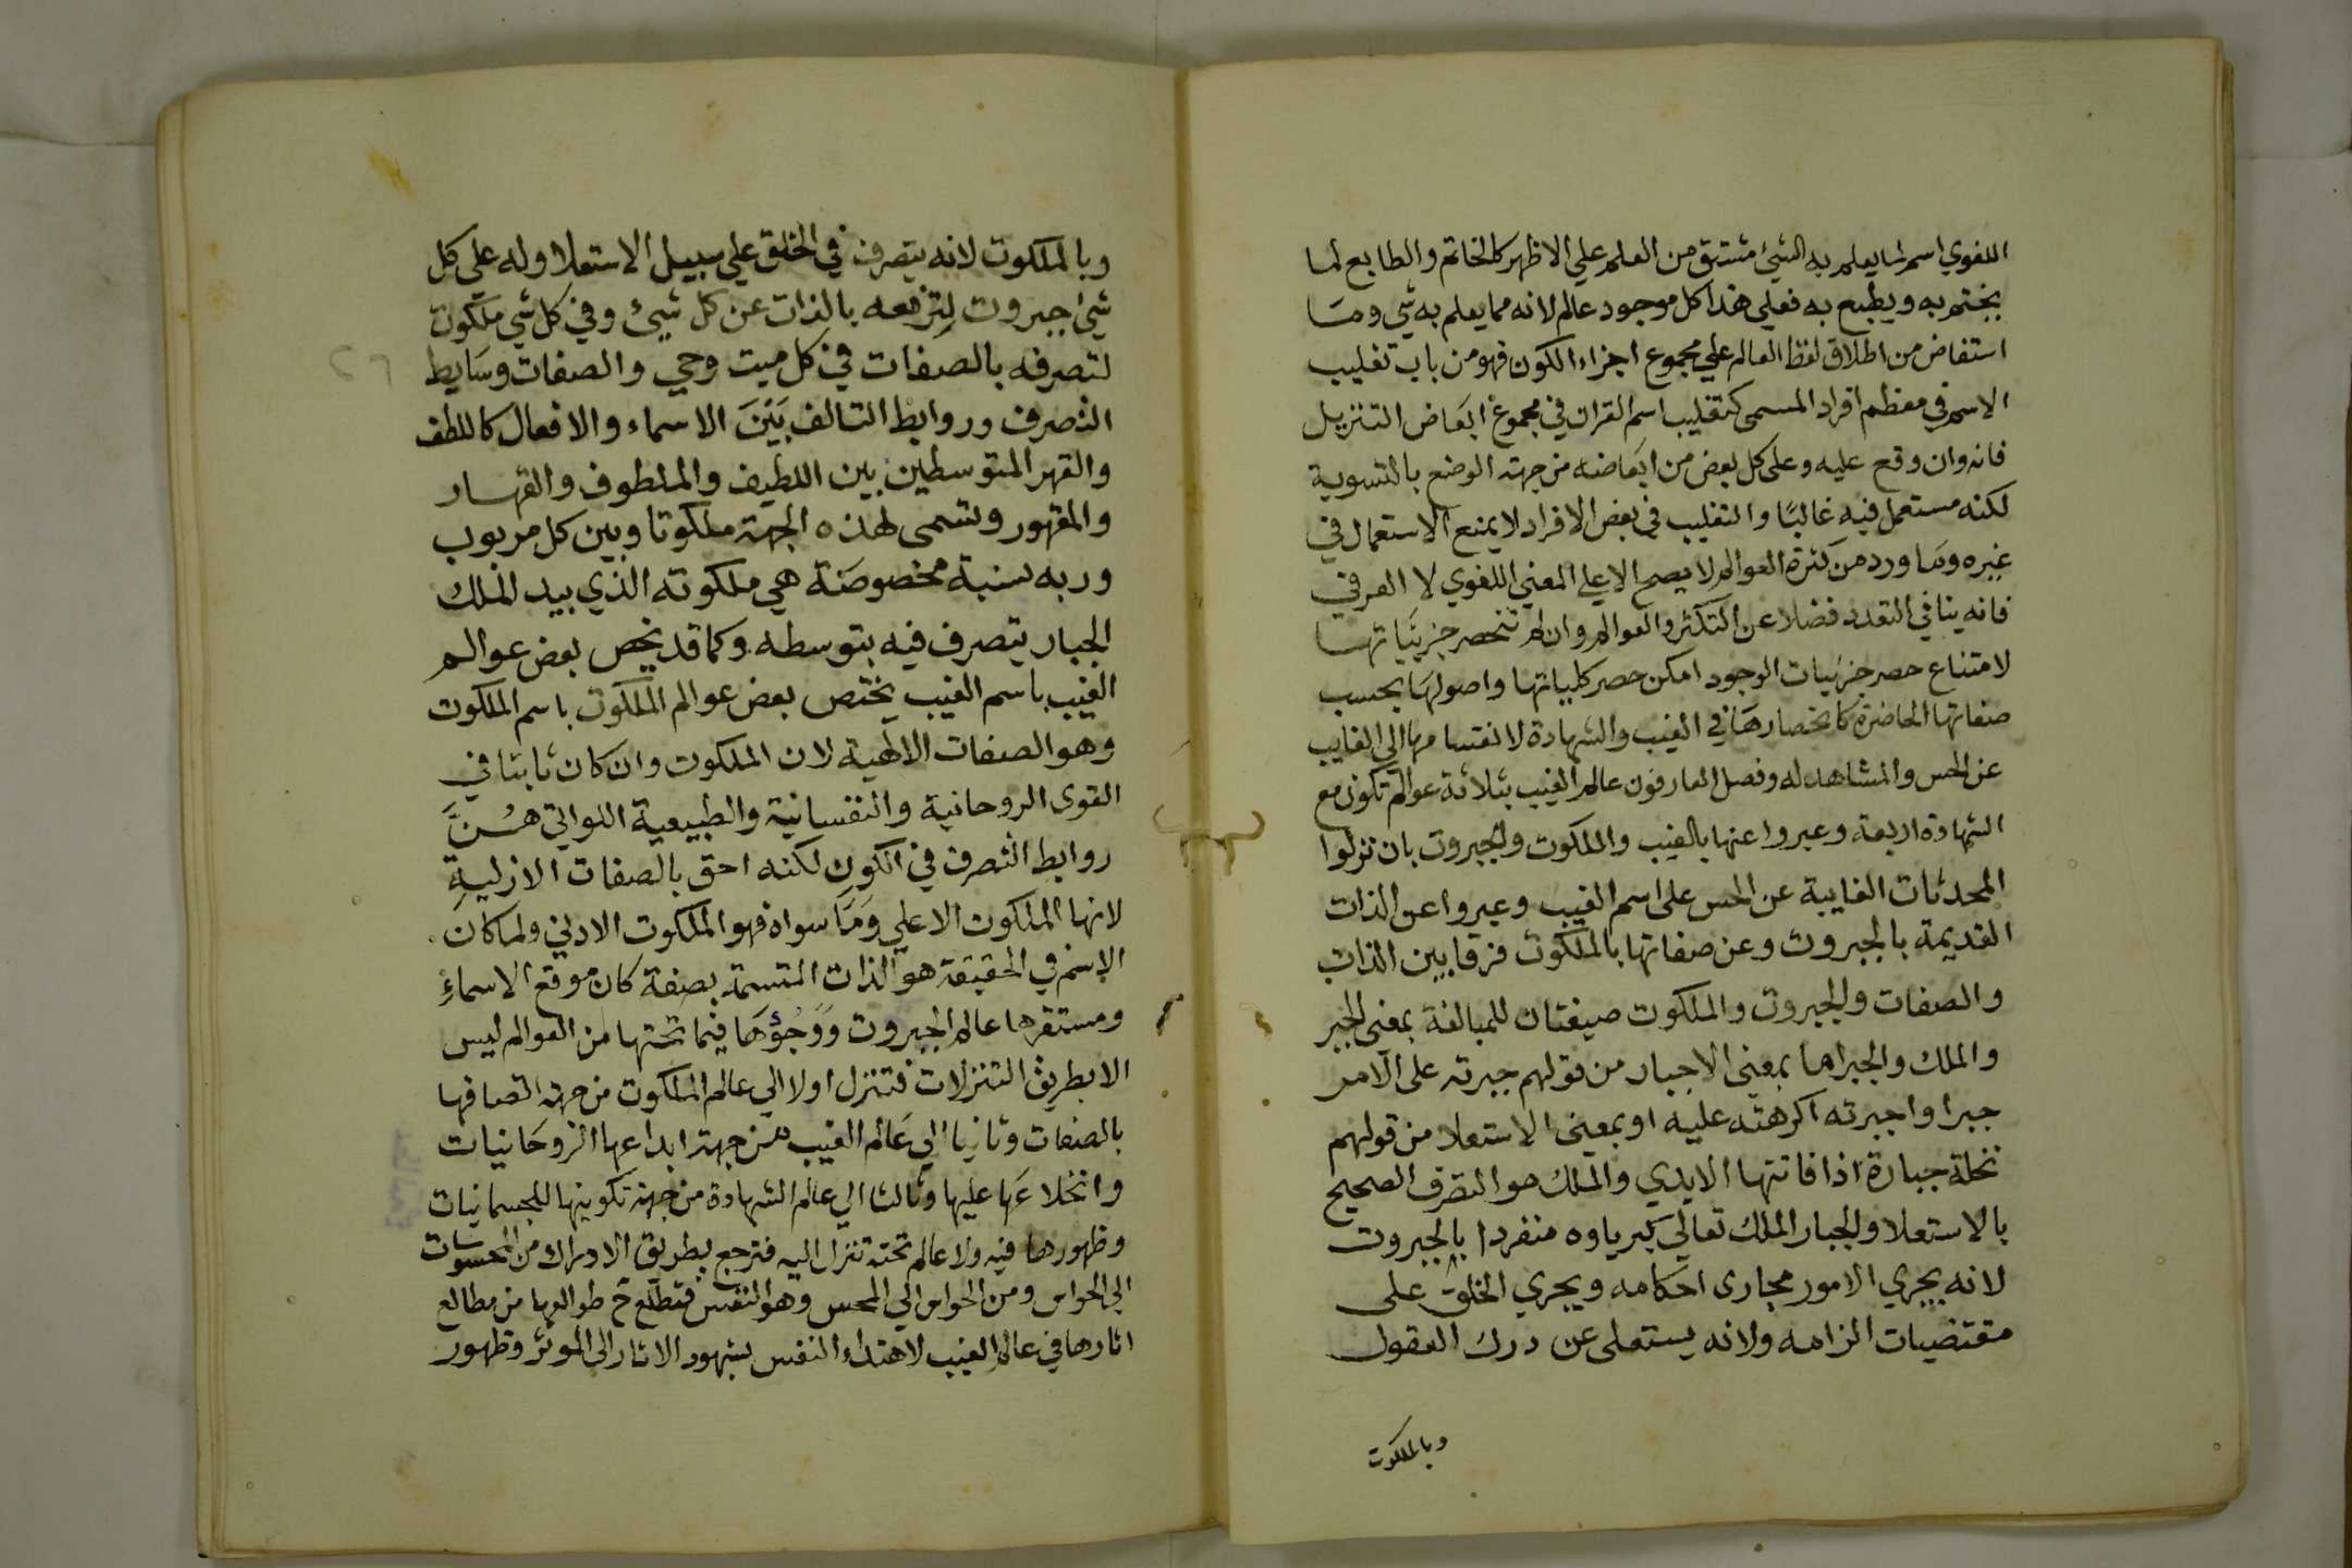 اللغوي اسم لما يعلم به الشيئ مشتق من العلم علي الاظهر كالخاتم والطابع لما
يختم به ويطبع به فعلي هذا كل موجود عالم لانه مما يعلم به شي وما
استفاض من اطلاق لفظ العالم علي مجموع اجزاء الكون فهو من باب تغليب
الاسم في معظم افراد المسمى كتغليب اسم القران في مجموع ابعاض التنزيل
فانه وان وقع عليه وعلى كل بعض من ابعاضه من جهة الوضع بالتسوية
لكنه مستعمل فيه غالبًا والتغليب في بعض الافراد لا يمنع الاستعمال في
غيره وما ورد من كثرة العوالم لا يصح الا علي المعني اللغوي لا العرفي
فانه ينافي التعدد فضلا عن التكثر والعوالم وان لم تنحصر جزيّياتها
لامتناع حصر جزئيات الوجود امكن حصر كلياتها واصولها بحسب
صفاتها الحاضرة كانحصارها في الغيب والشهادة لانقسامها الي الغايب
عن الحس والمشاهد له وفصل العارفون عالم الغيب بثلاثة عوالم تكون مع
الشهادة اربعة وعبروا عنها بالغيب والملكوت والجبروت بان نزلوا
المحدثات الغايبة عن الحس على اسم الغيب وعبروا عن الذات
القديمة بالجبروت وعن صفاتها بالملكوت فرقا بين الذات
والصفات والجبروت والملكوت صيغتان للمبالغة بمعنى الجبر
والملك والجبر اما بمعنى الاجبار من قولهم جبرته على الامر
جبرا واجبرته اكرهته عليه او بمعنى الاستعلا من قولهم
نخلة جبارة اذا فاتتها الايدي والملك هو التصرف الصحيح
بالاستعلا والجبار الملك تعالي كبرياوه منفردا بالجبروت
لانه يجري الامور مجارى احكامه ويجري الخلق على
مقتضيات الزامه ولانه يستعلى عن درك العقول
وبالملكوت
وبالملكوت لانه يتصرف في الخلق علي سبيل الاستعلا وله علي كل
شيئ جبروت لترفعه بالذات عن كل شيئ وفي كل شي ملكوت
لتصرفه بالصفات في كل ميت وحي والصفات وسايط
التصرف وروابط التالف بَيْنَ الاسماء والافعال كاللطف
والقهر المتوسطين بين اللطيف والملطوف والقهار
والمقهور وتسمى لهذه الجهة ملكوتا وبين كل مربوب
وربه نسبة مخصوصة هي ملكوته الذي بيد الملك
الجبار يتصرف فيه بتوسطه وكما قد يخص بعض عوالم
الغيب باسم الغيب يختص بعض عوالم الملكوت باسم الملكوت
وهو الصفات الالهية لان الملكوت وان كان ثابتا في
القوى الروحانية والنفسانية والطبيعية اللواتي هُنَّ
روابط التصرف في الكون لكنه احق بالصفات الازلية
لانها الملكوت الاعلي وَمَا سواه فهو الملكوت الادني ولما كان
الاسم في الحقيقة هو الذات المتسمة بصفة كان موقع الاسماءِ
ومستقرها عالم الجبروت وَوَلُجُؤهَا فيما تحتها من العوالم ليس
الا بطريق التنزلات فتنزل اولا الي عالم الملكوت من جهة اتصافها
بالصفات وثانيا الي عَالم الغيب من جهة ابداعها الروحَانيات
وانخلاعَها عليها وثالثا الي عالم الشهادة من جهة تكوينها للجسمانيات
وظهورها فيه ولا عالم تحته تنزل اليه فترجع بطريق الادراك من المحسوسات
الي الحواس ومن الحواس الي المحس وهو النفس فتطلع ح طوالعها من مطالع
اثارها في عالم الغيب لاهتداء النفس بشهود الاثار الى المؤثر وظهور